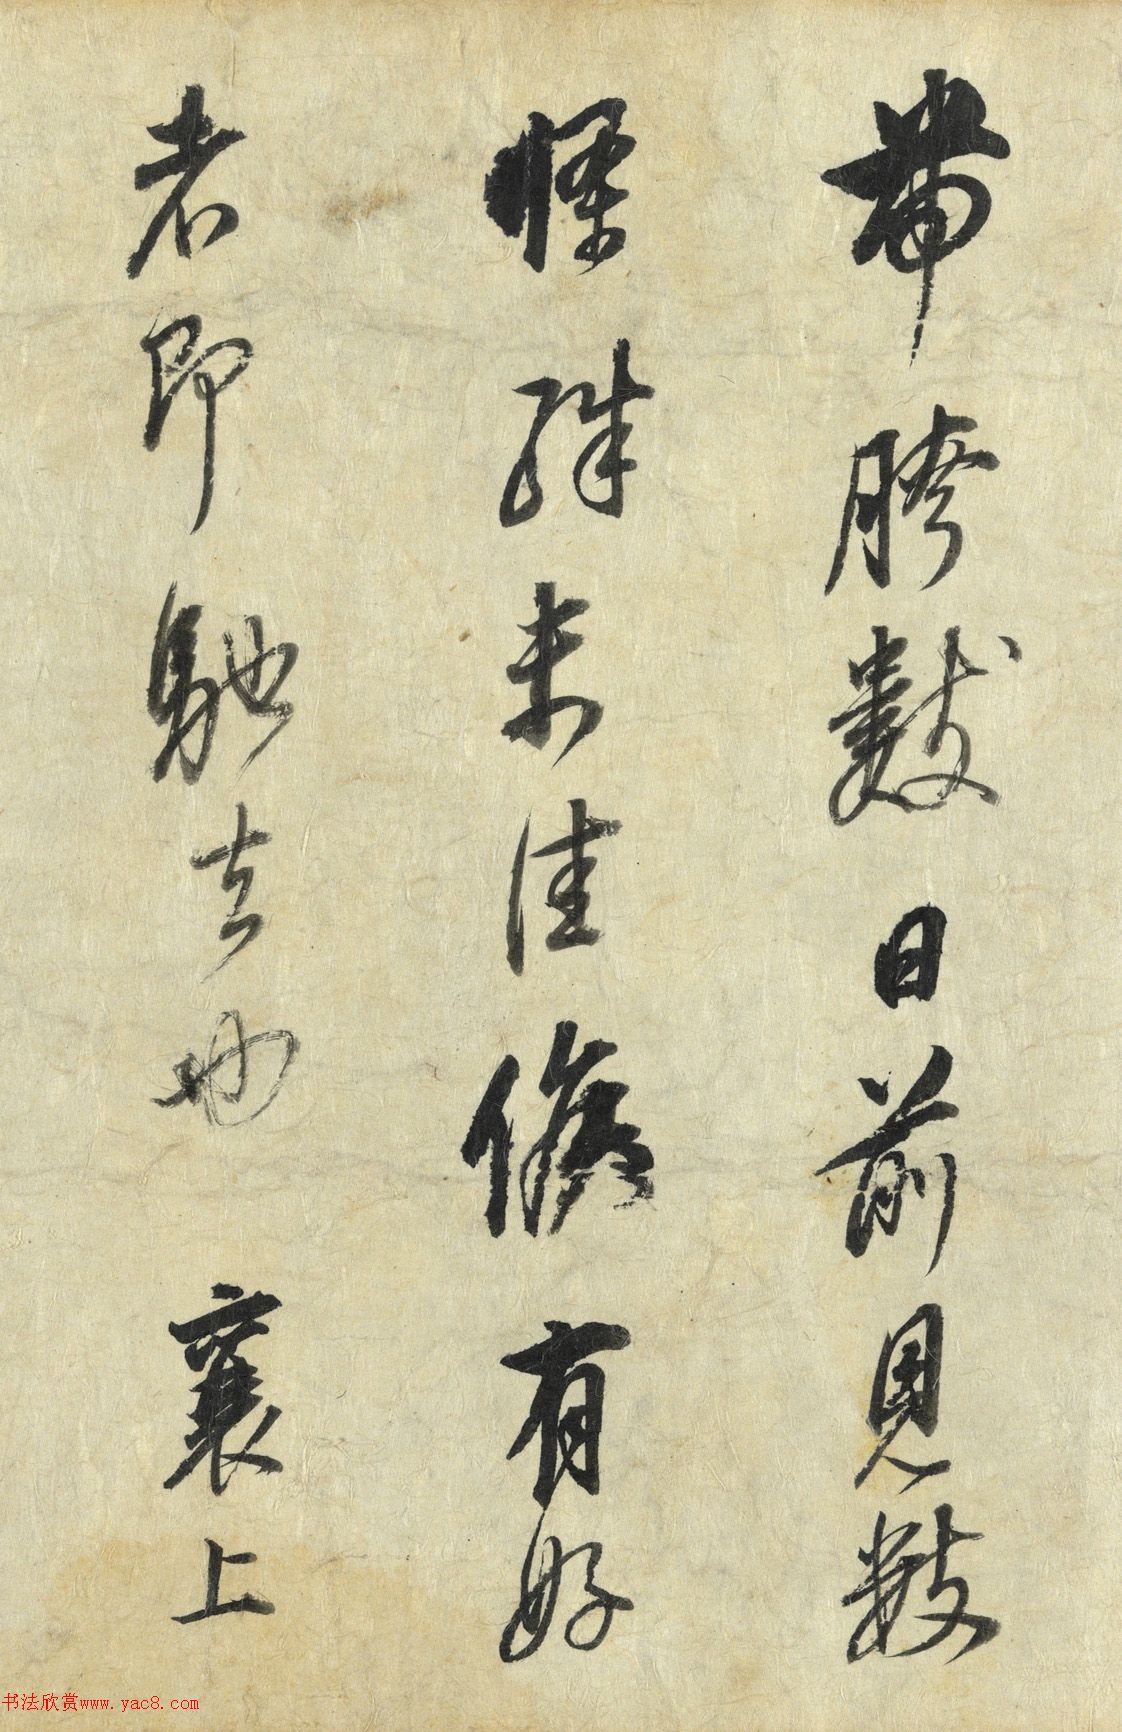 帶胯數日前見數
條殊未佳儻有好
者即馳去也 襄上
书法欣赏www.yac8.com